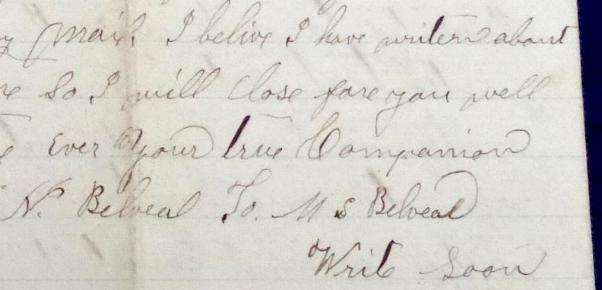 mail. I belive I have writen about
So I will close fare you well
Ever your true Companion
N. Belveal To. M S Belveal
Writ soon